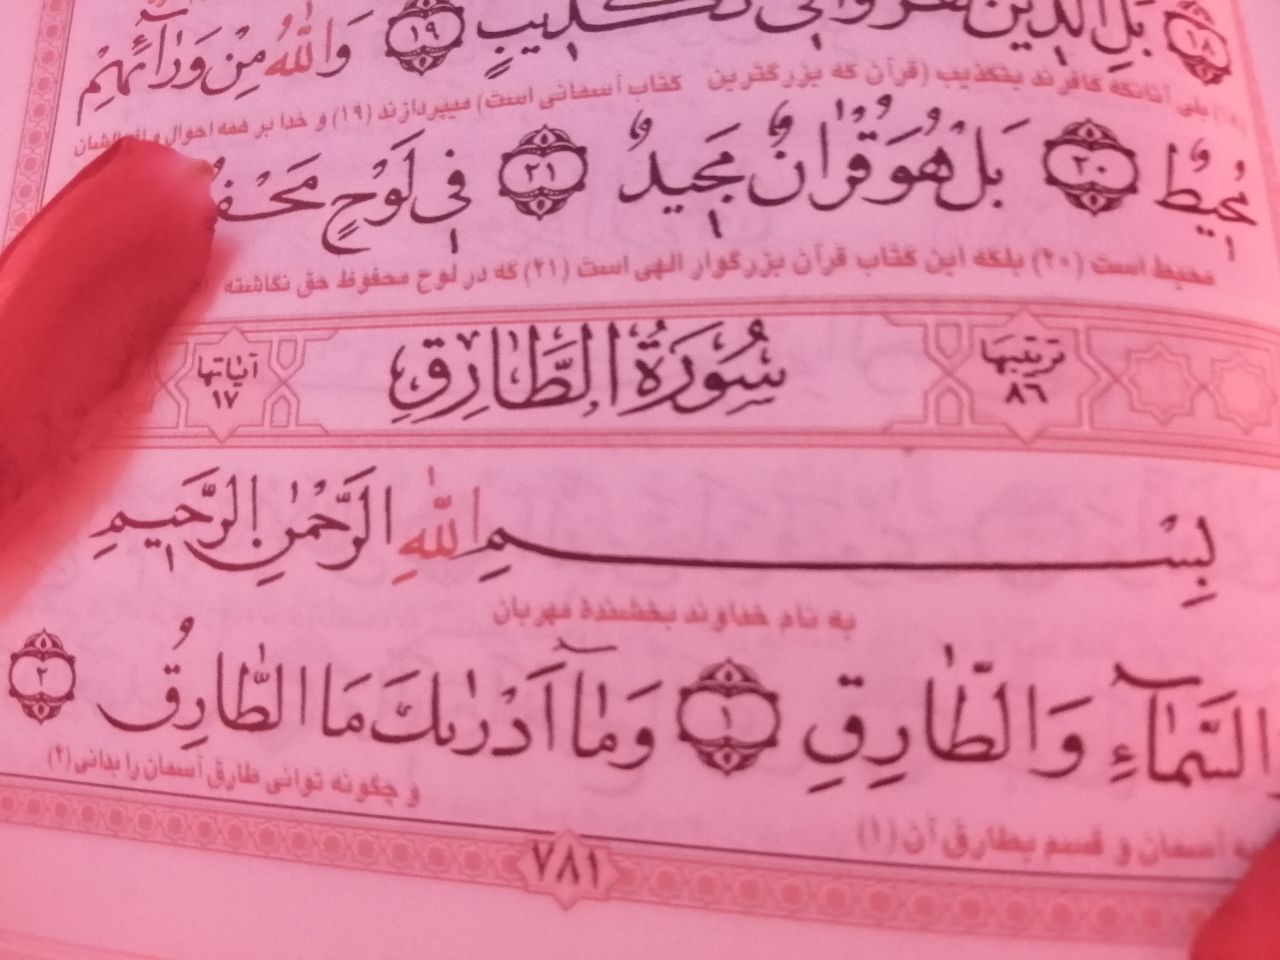 ١٨ بَلِ الَّذينَ كَفَرُوا فى تَكْذيبٍ ١٩ وَاللّٰهُ مِنْ وَرَآئِهِمْ
بلی آنانکه کافرند بتکذیب (قرآن که بزرگترین کتاب آسمانی است) میپردازند (۱۹) و خدا بر همه احوال و
مُحيطٌ ٢٠ بَلْ هُوَ قُرْاٰنٌ مَجيدٌ ٢١ فى لَوْحٍ
محیط است (۲۰) بلکه این کتاب قرآن بزرگوار الهی است (۲۱) که در لوح محفوظ حق نگاشته
ترتیبها ٨٦ سُورَةُ الطَّارِقِ آیاتها ١٧
بِسْمِ اللّٰهِ الرَّحْمٰنِ الرَّحيمِ
به نام خداوند بخشندهٔ مهربان
السَّمَآءِ وَالطَّارِقِ ١ وَمَآ اَدْرٰیكَ مَا الطَّارِقُ ٢
آسمان و قسم بطارق آن (۱) و چگونه توانی طارق آسمان را بدانی (۲)
٧٨١